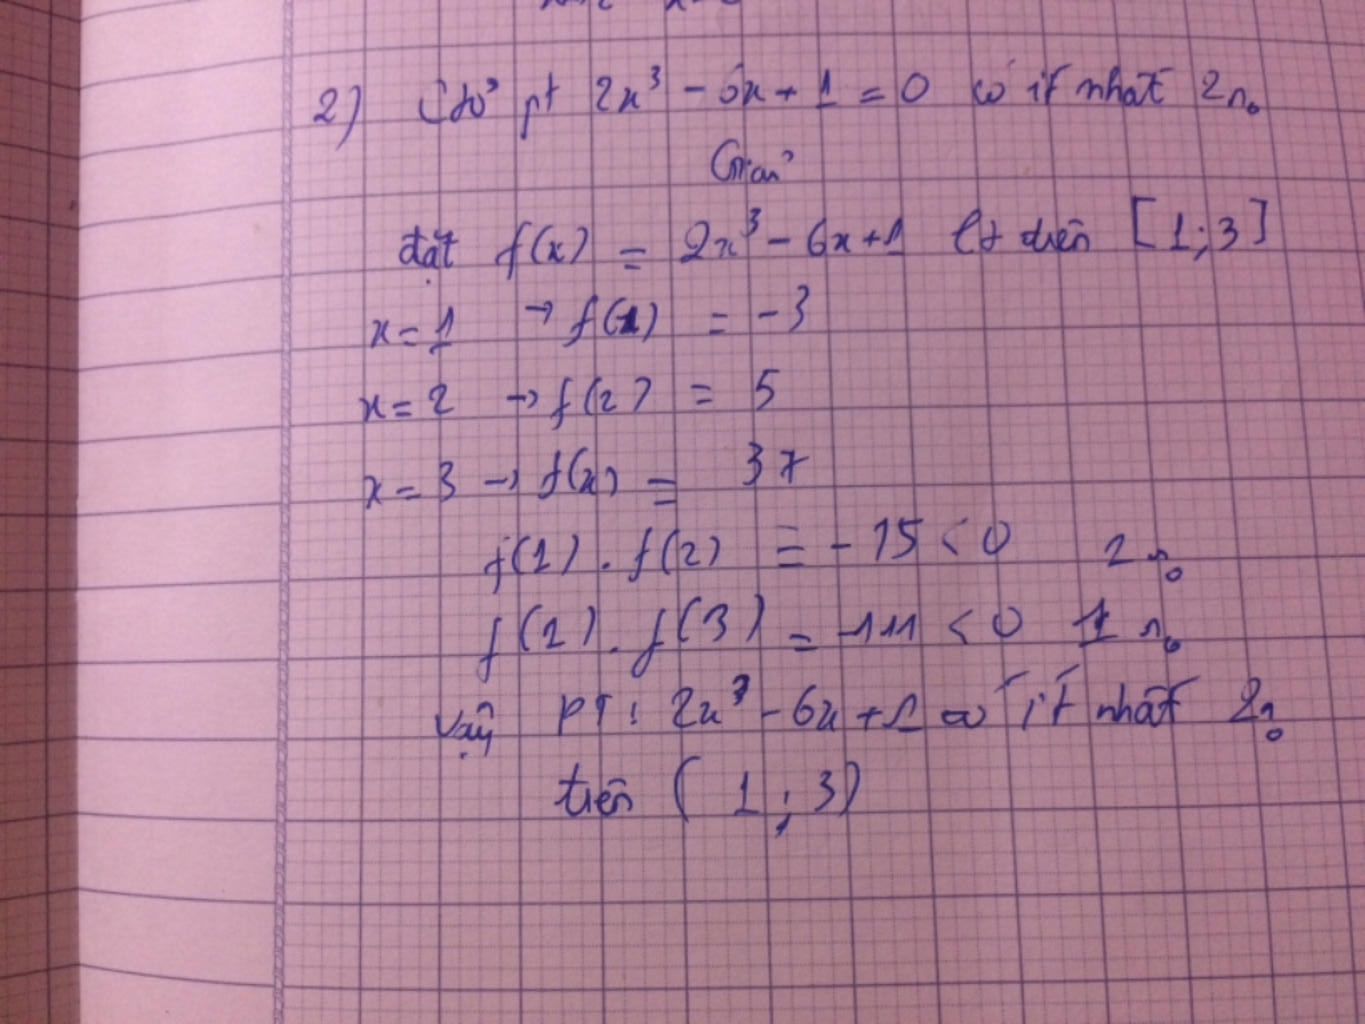 2) Ctỏ pt 2x³ - 6x + 1 = 0 có ít nhất 2 n₀
Giải
đặt f(x) = 2x³ - 6x + 1 lt trên [1;3]
x = 1 → f(1) = -3
x = 2 → f(2) = 5
x = 3 → f(x) = 37
f(1) . f(2) = -15 < 0 2 n₀
f(2) . f(3) = -111 < 0 1 n₀
Vậy PT: 2x³ - 6x + 1 có ít nhất 2 n₀
trên (1;3)